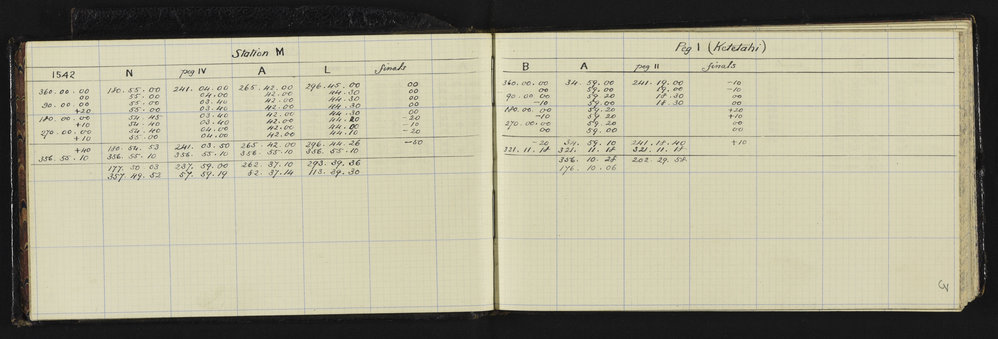 Station M
1542 N peg IV A L finals
360.00.00 180.55.00 241.04.00 265.42.00 296.45.00 00
00 55.00 04.00 42.00 44.30 00
90.00.00 55.00 03.40 42.00 44.30 00
+20 55.00 03.40 42.00 44.30 00
180.00.00 54.45 03.40 42.00 44.30 -20
+10 54.40 03.40 42.00 44.20 -10
270.00.00 54.40 04.00 42.00 44.00 -20
+10 55.00 04.00 42.00 44.10
+40 180.54.53 241.03.50 265.42.00 296.44.26 -50
356.55.10 356.55.10 356.55.10 356.55.10 356.55.10
177.50.03 237.59.00 262.37.10 293.39.36
357.49.52 57.59.19 82.37.14 113.39.30
Peg I (Ketetahi)
B A peg II finals
360.00.00 34.59.00 241.19.00 -10
00 59.00 19.00 -10
90.00.00 59.20 18.30 00
-10 59.00 18.30 00
180.00.00 59.20 +20
-10 59.20 +10
270.00.00 59.20 00
00 59.00 00
-20 34.59.10 241.18.40 +10
321.11.18 321.11.18 321.11.18
356.10.28 202.29.58
176.10.06